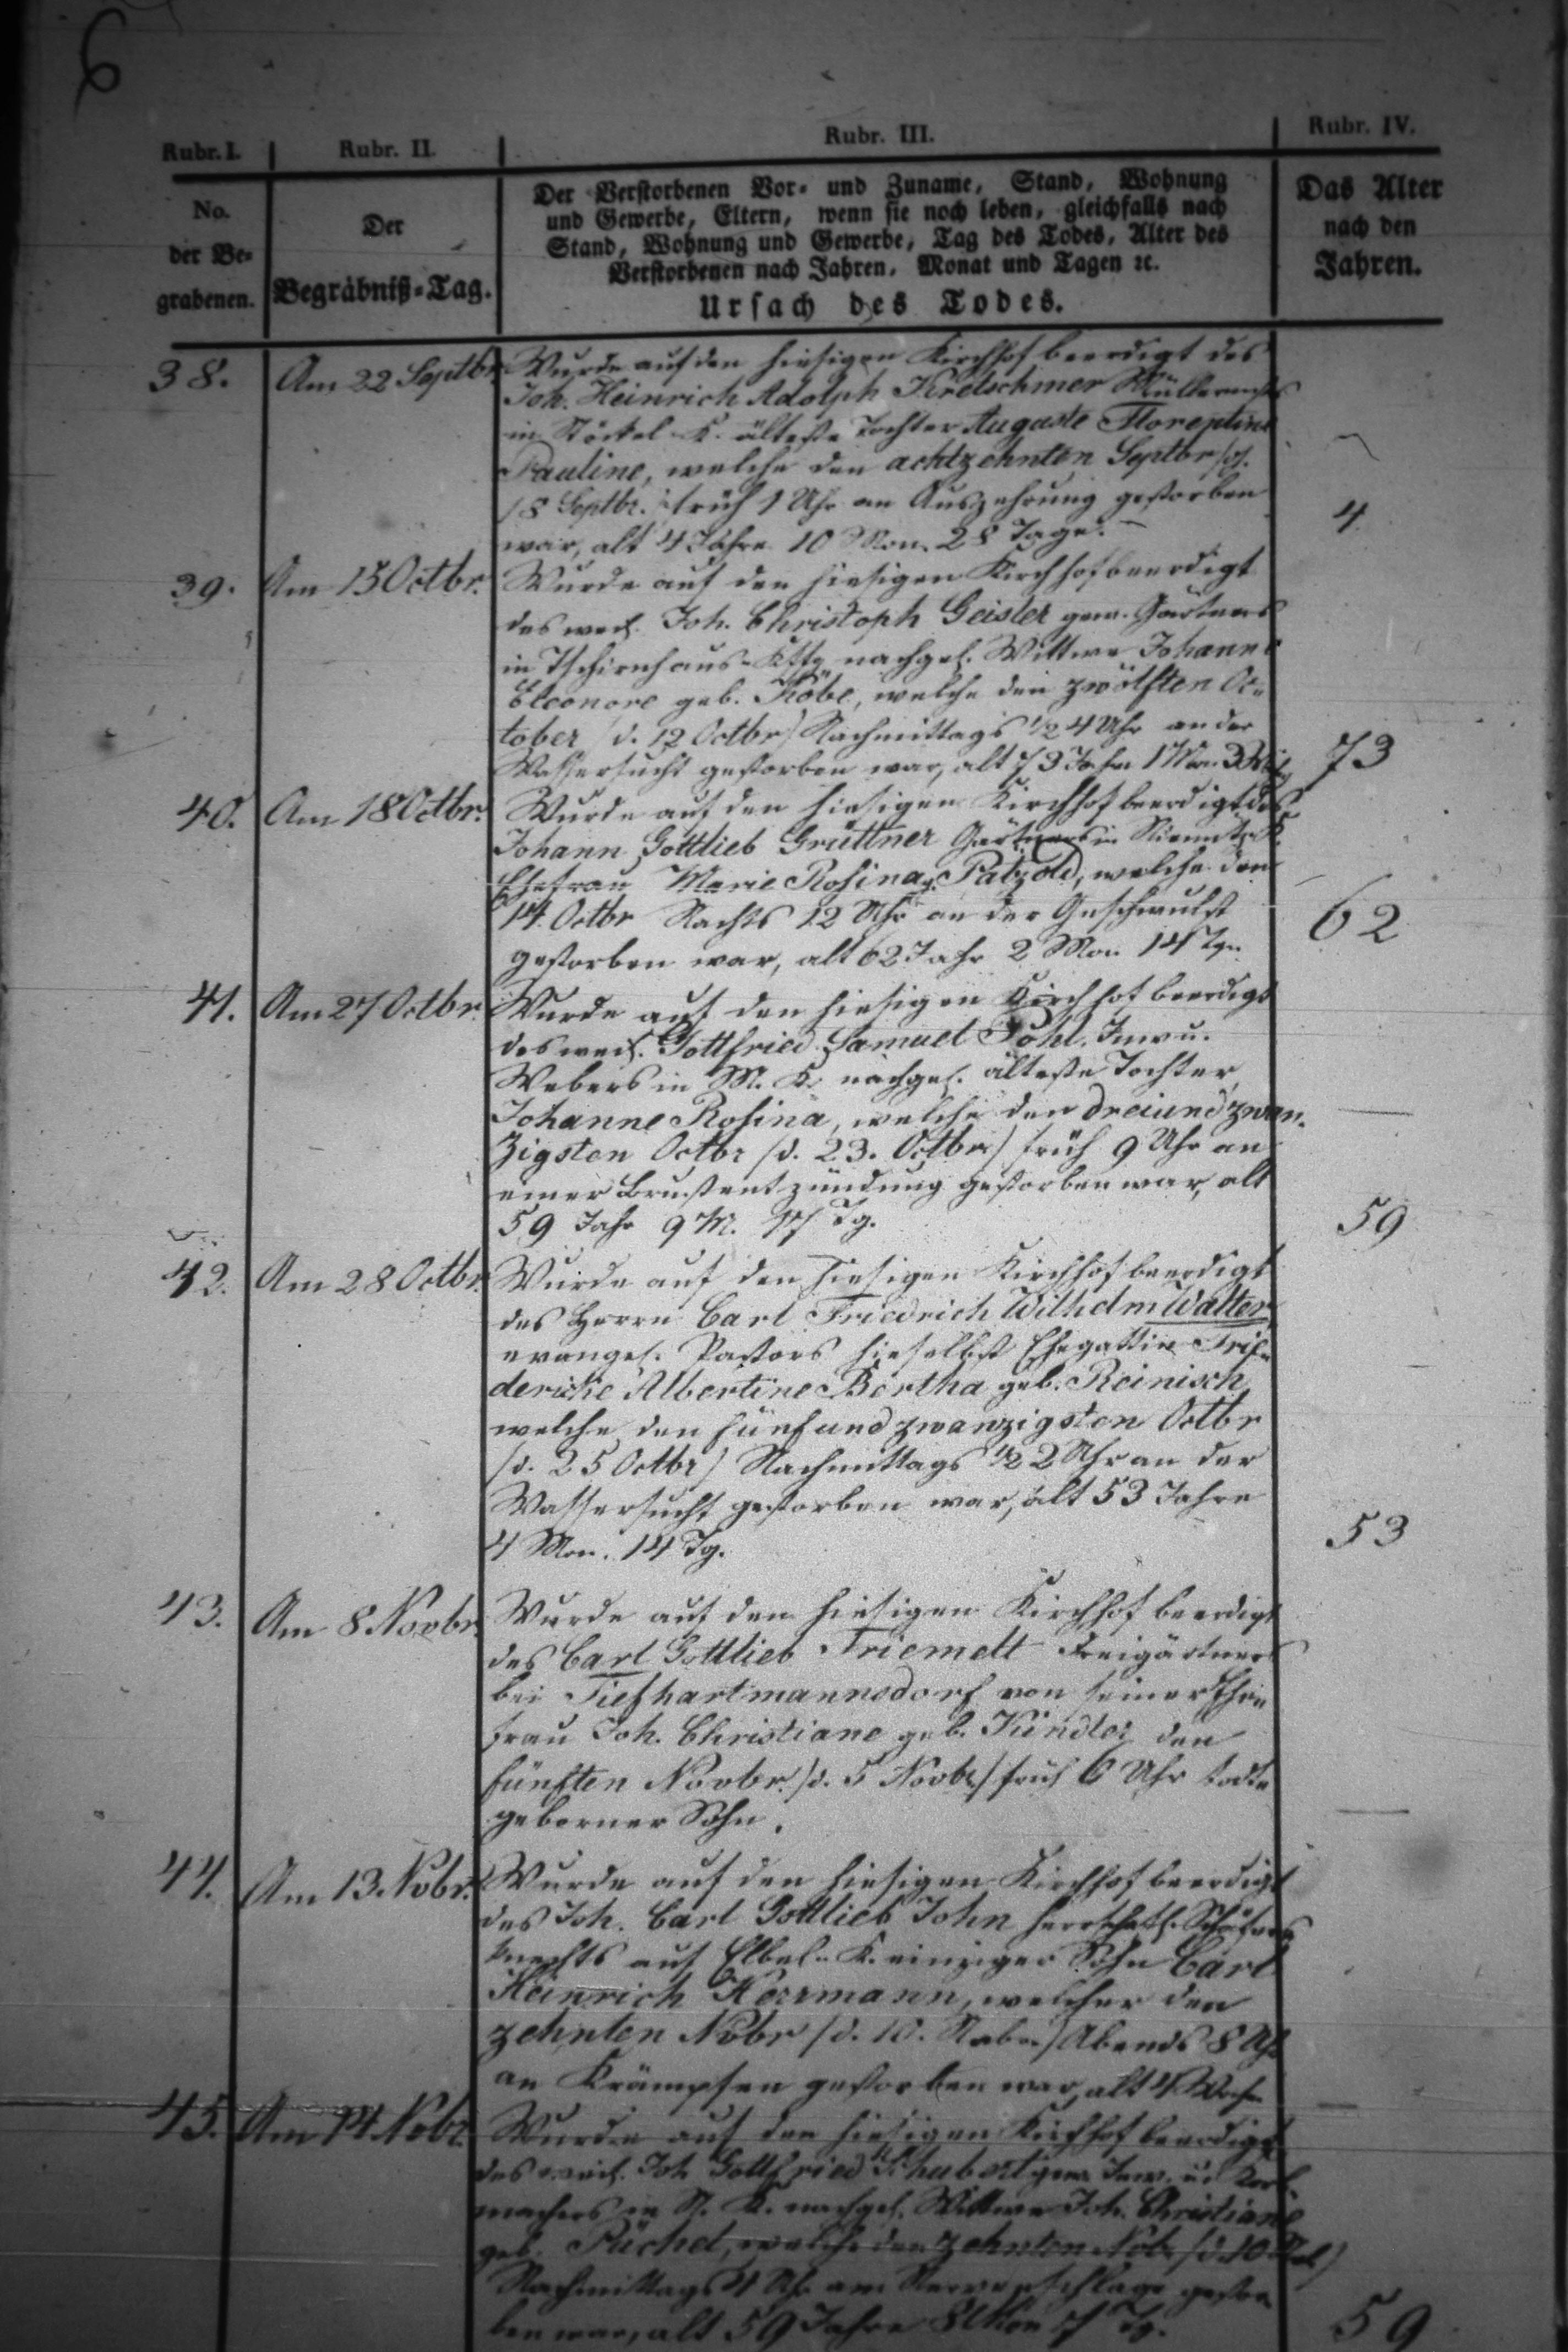 6
Rubr. I. Rubr. II. Rubr. III. Rubr. IV.
No. der Be-grabenen.
Der Begräbniß-Tag.
Der Verstorbenen Vor- und Zuname, Stand, Wohnung
und Gewerbe, Eltern, wenn sie noch leben, gleichfalls nach
Stand, Wohnung und Gewerbe, Tag des Todes, Alter des
Verstorbenen nach Jahren, Monat und Tagen ꝛc.
Ursach des Todes.
Das Alter
nach den
Jahren.
38. Am 22 Septbr. Wurde auf den hiesigen Kirchhof beerdigt des
Joh. Heinrich Adolph Kretschmer
in Stöckel-K. älteste Tochter Auguste Florentine
Pauline, welche den achtzehnten Septbr /d.
18 Septbr. früh 1 Uhr an Auszehrung gestorben
war, alt 4 Jahre 10 Mon. 28 Tage. 4
39. Am 15 Octbr. Wurde auf den hiesigen Kirchhof beerdigt
des weil. Joh. Christoph Geisler gew. Gärtners
in Tschirnhaus-Kffg nachgel. Wittwe Johanne
Eleonore geb. Köbe, welche den zwölften Oc-
tober /d. 12 Octbr/ Nachmittags ½ 4 Uhr an der
Wassersucht gestorben war, alt 73 Jahr 1 Mon. 73
40. Am 18 Octbr. Wurde auf den hiesigen Kirchhof beerdigt des
Johann Gottlieb Grüttner Gärtners in
Ehefrau Marie Rosina g. Patzold, welche den
14. Octbr Nachts 12 Uhr an der Geschwulst
gestorben war, alt 62 Jahr 2 Mon. 14 Tge. 62
41. Am 27 Octbr. Wurde auf den hiesigen Kirchhof beerdigt
des weil. Gottfried Samuel Pohl, Inw u.
Webers in M. K. nachgel. älteste Tochter
Johanne Rosina, welche den dreiundzwan-
zigsten Octbr /d. 23. Octbr/ früh 9 Uhr an
einer Brustentzündung gestorben war, alt
59 Jahr 9 M. 17 Tg. 59
42. Am 28 Octbr. Wurde auf den hiesigen Kirchhof beerdigt
des Herrn Carl Friedrich Wilhelm Walter,
evangel. Pastors hieselbst Ehegattin Frie-
dericke Albertine Bertha geb. Reinisch
welche den fünfundzwanzigsten Octbr
/d. 25 Octbr/ Nachmittags ½ 2 Uhr an der
Wassersucht gestorben war, alt 53 Jahre
4 Mon. 14 Tg. 53
43. Am 8 Novbr. Wurde auf den hiesigen Kirchhof beerdigt
des Carl Gottlieb Friemelt Freigärtners
bei Tiefhartmannsdorf von seiner Ehe-
frau Joh. Christiane geb. Kindler den
fünften Novbr. /d. 5 Novbr/ früh 6 Uhr todt-
geborner Sohn.
44. Am 13. Nobr. Wurde auf den hiesigen Kirchhof beerdigt
des Joh. Carl Gottlieb John herrschaftl.
knechts auf Elbel-K. einziger Sohn Carl
Heinrich Herrmann, welcher den
zehnten Nobr /d. 10. Nobr/ Abends 8 Uhr
an Krämpfen gestorben war, alt 4 Woch.
45. Am 14 Nobr. Wurde auf den hiesigen Kirchhof beerdigt
des weil. Joh Gottfried Schubert gew. Inw. u.
machers in K. nachgel. Wittwe Joh. Christiane
geb. Püschel, welche den zehnten Nobr /d. 10
Nachmittags 4 Uhr am Nervenschlage gestor-
ben war, alt 59 Jahre 8 Mon 7 Tg. 59